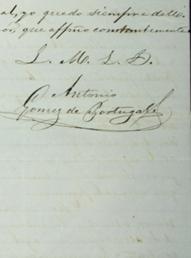 al, yo quedo siempre de Uso
or, que affmo constantemente
L. M. L. B.
Antonio
Gomez de Portugal